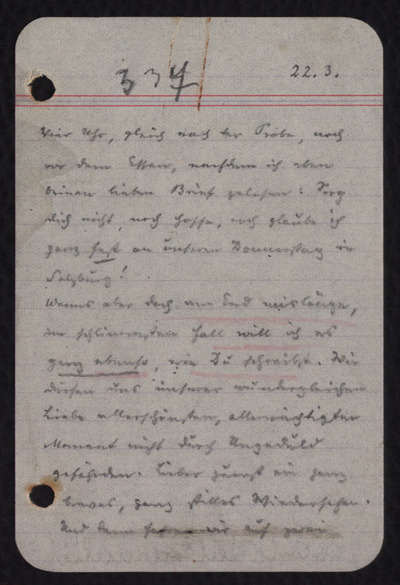 337
22.3.
Vier Uhr, gleich nach der Probe, noch
vor dem Essen, nachdem ich eben
deinen lieben Brief gelesen: Sorg
dich nicht, noch hoffe, noch glaube ich
ganz fest an unseren Donnerstag in
Salzburg!
Wenns aber doch am End misslänge,
im schlimmsten Fall will ich es
ganz ebenso, wie Du schreibst. Wir
dürfen uns unserer wundergleichen
Liebe allerschönsten, allermächtigsten
Moment nicht durch Ungeduld
gefährden. Lieber zuerst ein ganz
braves, ganz stilles Wiedersehen.
Und dann wir auf zwei